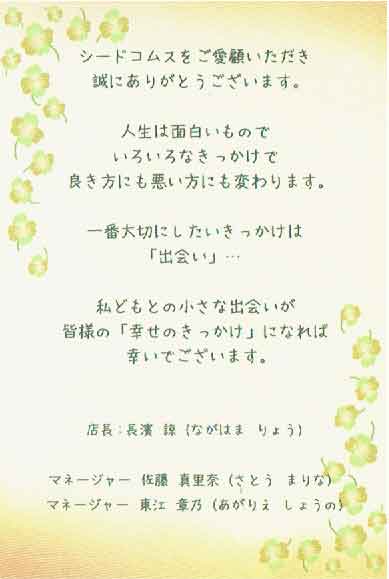 シードコムスをご愛顧いただき
誠にありがとうございます。
人生は面白いもので
いろいろなきっかけで
良き方にも悪い方にも変わります。
一番大切にしたいきっかけは
「出会い」…
私どもとの小さな出会いが
皆様の「幸せのきっかけ」になれば
幸いでございます。
店長：長濱 諒 (ながはま りょう)
マネージャー 佐藤 真里奈 (さとう まりな)
マネージャー 東江 章乃 (あがりえ しょうの)